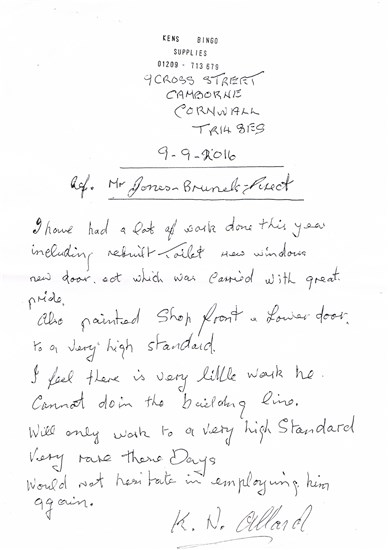 KENS BINGO
SUPPLIES
01209 - 713 679
9 CROSS STREET
CAMBORNE
CORNWALL
TR14 8ES
9-9-2016
Ref. Mr Jones - Brunel - Direct
I have had a lot of work done this year
including rebuilt toilet new windows
new door. ect which was carried with great
pride.
Also painted Shop front & Lower door.
to a very high standard.
I feel there is very little work he
Cannot do in the building line.
Will only work to a very high Standard
Very rare these Days
Would not hesitate in employing him
again.
K. N. Allard